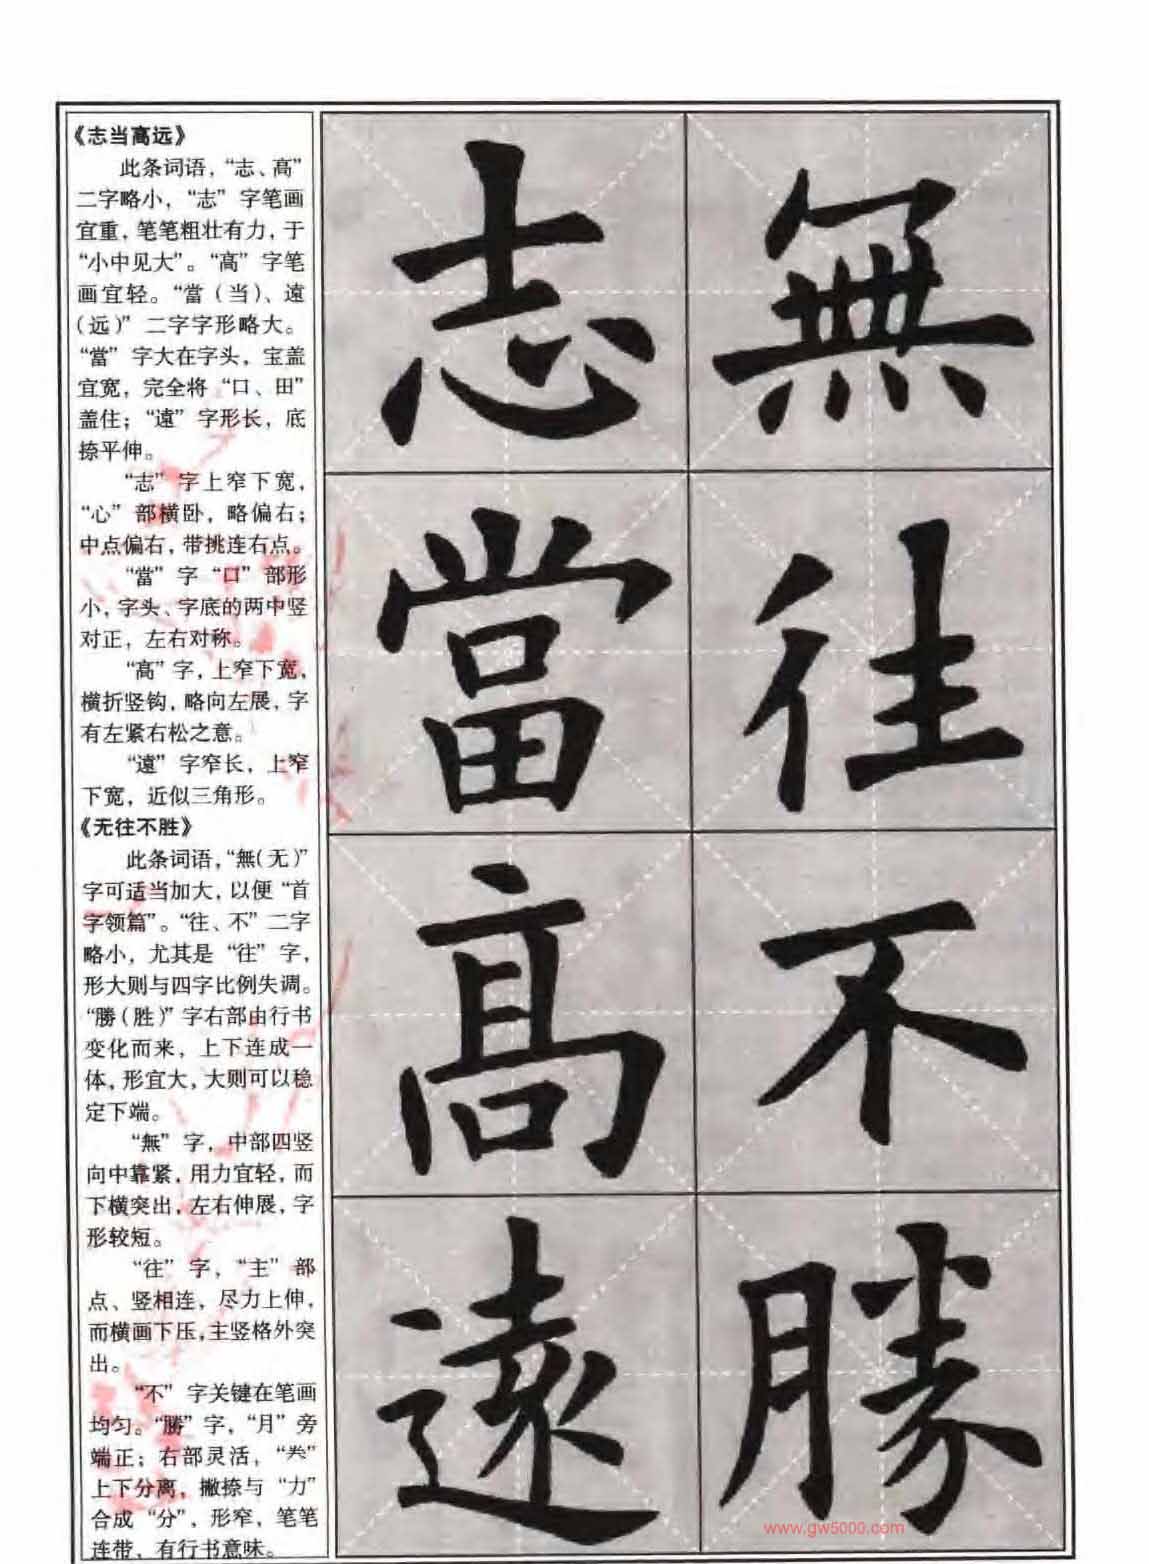 《志当高远》
此条词语，“志、高”
二字略小，“志”字笔画
宜重，笔笔粗壮有力，于
“小中见大”。“高”字笔
画宜轻。“當（当）、遠
（远）”二字字形略大。
“當”字大在字头，宝盖
宜宽，完全将“口、田”
盖住；“遠”字形长，底
捺平伸。
“志”字上窄下宽，
“心”部横卧，略偏右；
中点偏右，带挑连右点。
“當”字“口”部形
小，字头、字底的两中竖
对正，左右对称。
“高”字，上窄下宽，
横折竖钩，略向左展，字
有左紧右松之意。
“遠”字窄长，上窄
下宽，近似三角形。
《无往不胜》
此条词语，“無（无）”
字可适当加大，以便“首
字领篇”。“往、不”二字
略小，尤其是“往”字，
形大则与四字比例失调。
“勝（胜）”字右部由行书
变化而来，上下连成一
体，形宜大，大则可以稳
定下端。
“無”字，中部四竖
向中靠紧，用力宜轻，而
下横突出，左右伸展，字
形较短。
“往”字，“主”部
点、竖相连，尽力上伸，
而横画下压，主竖格外突
出。
“不”字关键在笔画
均匀。“勝”字，“月”旁
端正；右部灵活，“龹”
上下分离，撇捺与“力”
合成“分”，形窄，笔笔
连带，有行书意味。
志當高遠
無往不勝
www.gw5000.com